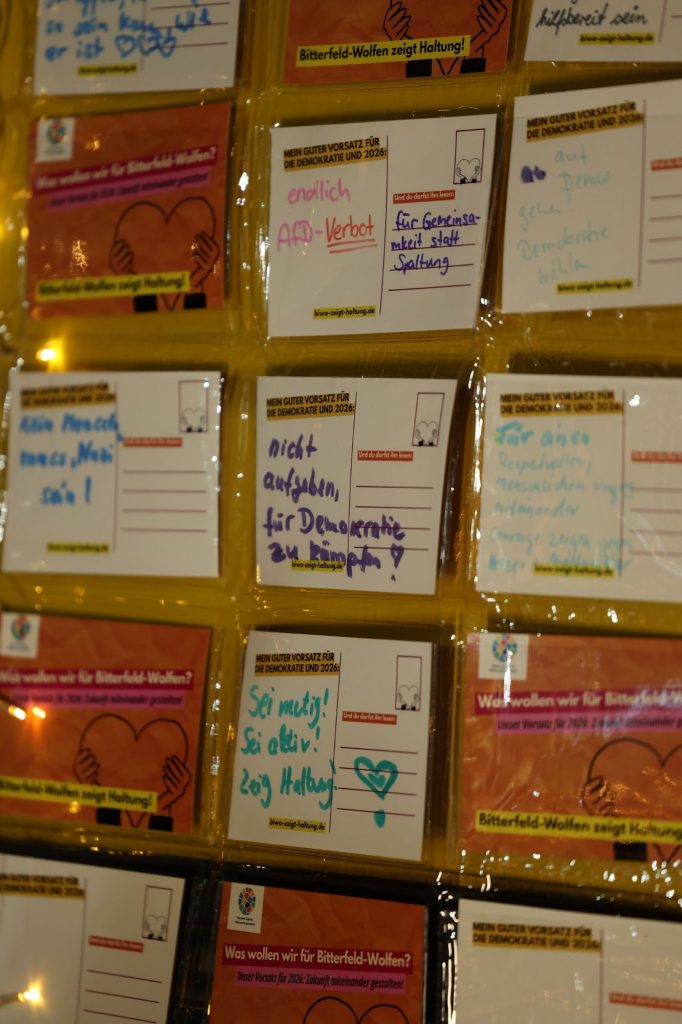 so sein kann wie
er ist
biwo-zeigt-haltung.de
Bitterfeld-Wolfen zeigt Haltung!
hilfsbereit sein
biwo-zeigt-haltung.de
Was wollen wir für Bitterfeld-Wolfen?
Unser Vorsatz für 2026: Zukunft miteinander gestalten!
Bitterfeld-Wolfen zeigt Haltung!
MEIN GUTER VORSATZ FÜR
DIE DEMOKRATIE UND 2026:
endlich
AfD-Verbot
Und du darfst ihn lesen:
für Gemeinsa-
mkeit statt
Spaltung
biwo-zeigt-haltung.de
MEIN GUTER VORSATZ FÜR
DIE DEMOKRATIE UND 2026:
auf
Demos
gehen!
Demokratie
wählen
biwo-zeigt-haltung.de
MEIN GUTER VORSATZ FÜR
DIE DEMOKRATIE UND 2026:
Kein Mensch
muss Nazi
sein!
Und du darfst ihn lesen:
biwo-zeigt-haltung.de
MEIN GUTER VORSATZ FÜR
DIE DEMOKRATIE UND 2026:
nicht
aufgeben,
für Demokratie
zu kämpfen!
Und du darfst ihn lesen:
biwo-zeigt-haltung.de
MEIN GUTER VORSATZ FÜR
DIE DEMOKRATIE UND 2026:
Für einen
Respektvollen,
menschlichen Umgang
miteinander
Courage zeigen gegen
biwo-zeigt-haltung.de
Was wollen wir für Bitterfeld-Wolfen?
Unser Vorsatz für 2026: Zukunft miteinander gestalten!
Bitterfeld-Wolfen zeigt Haltung!
MEIN GUTER VORSATZ FÜR
DIE DEMOKRATIE UND 2026:
Sei mutig!
Sei aktiv!
Zeig Haltung!
Und du darfst ihn lesen:
biwo-zeigt-haltung.de
Was wollen wir für Bitterfeld-W
Unser Vorsatz für 2026: Zukunft miteinander g
Bitterfeld-Wolfen zeigt Haltung
DIE DEMOKRATIE UND 2026:
Und du darfst ihn lesen:
Was wollen wir für Bitterfeld-Wolfen?
Unser Vorsatz für 2026: Zukunft miteinander gestalten!
MEIN GUTER VORSATZ FÜR
DIE DEMOKRATIE UND 2026: